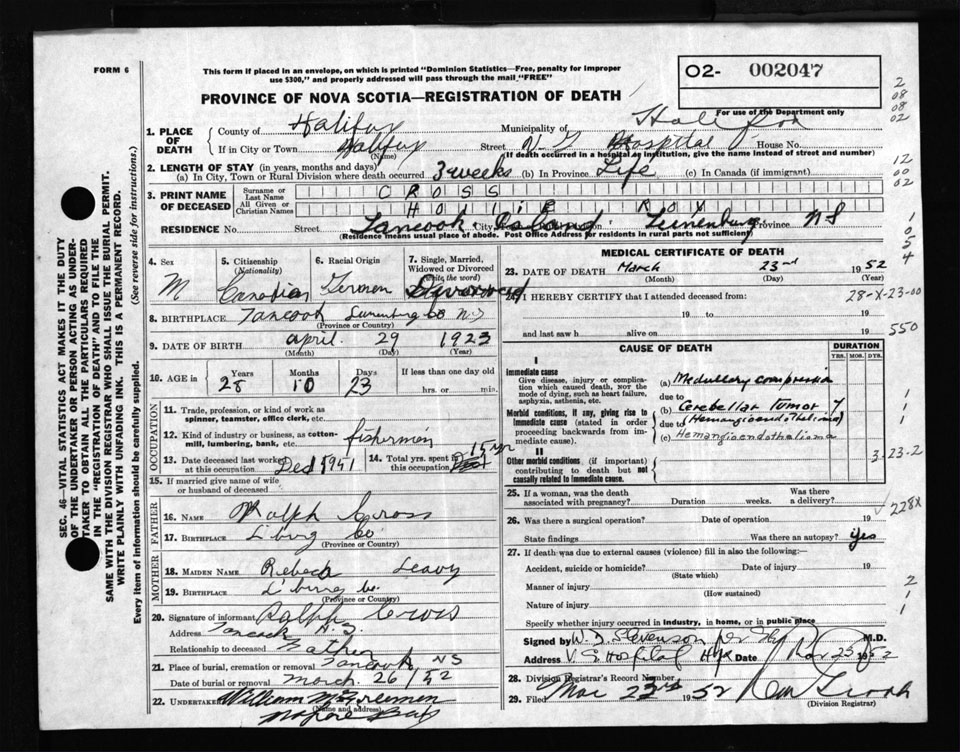 FORM 6
This form if placed in an envelope, on which is printed "Dominion Statistics—Free, penalty for improper
use $300," and properly addressed will pass through the mail "FREE"
PROVINCE OF NOVA SCOTIA—REGISTRATION OF DEATH
02- 002047
For use of the Department only
1. PLACE OF DEATH
County of Halifax Municipality of
If in City or Town Halifax Street V. G. Hospital House No.
(Name) (If death occurred in a hospital or institution, give the name instead of street and number)
2. LENGTH OF STAY (in years, months and days)
(a) In City, Town or Rural Division where death occurred 3 weeks (b) In Province Life (c) In Canada (if immigrant)
3. PRINT NAME OF DECEASED
Surname or Last Name CROSS
All Given or Christian Names HOLLIE ROY
RESIDENCE No. Street Tancook Island City Lunenburg Province NS
(Residence means usual place of abode. Post Office Address for residents in rural parts not sufficient)
4. Sex M
5. Citizenship (Nationality) Canadian
6. Racial Origin German
7. Single, Married, Widowed or Divorced (Write the word)
8. BIRTHPLACE Tancook Lunenburg Co N.S
(Province or Country)
9. DATE OF BIRTH April 29 1923
(Month) (Day) (Year)
10. AGE in Years 28 Months 10 Days 23 If less than one day old hrs. or min.
OCCUPATION
11. Trade, profession, or kind of work as spinner, teamster, office clerk, etc.
12. Kind of industry or business, as cotton-mill, lumbering, bank, etc. fishermen
13. Date deceased last worked at this occupation Dec 1951
14. Total yrs. spent in this occupation 15 yr
15. If married give name of wife or husband of deceased
FATHER
16. NAME Ralph Cross
17. BIRTHPLACE L'burg Co
(Province or Country)
MOTHER
18. MAIDEN NAME Rebecca Leavy
19. BIRTHPLACE L'burg Co
(Province or Country)
20. Signature of informant Ralph Cross
Address Tancook N.S.
Relationship to deceased Father
21. Place of burial, cremation or removal Tancook NS
Date of burial or removal March 26/52
22. UNDERTAKER William
(Name and address)
MEDICAL CERTIFICATE OF DEATH
23. DATE OF DEATH March 23rd 1952
(Month) (Day) (Year)
24. I HEREBY CERTIFY that I attended deceased from:
19 to 19
and last saw h alive on 19
CAUSE OF DEATH
DURATION
YRS. MOS. DYS.
I
Immediate cause
Give disease, injury or complication which caused death, not the mode of dying, such as heart failure, asphyxia, asthenia, etc.
(a) Medullary compression
due to
Morbid conditions, if any, giving rise to immediate cause (stated in order proceeding backwards from immediate cause).
(b) Cerebellar tumor
due to (Hemangioendothelioma)
(c) Hemangioendothelioma
II
Other morbid conditions (if important) contributing to death but not causally related to immediate cause.
25. If a woman, was the death associated with pregnancy? Duration weeks. Was there a delivery?
26. Was there a surgical operation? Date of operation 19
State findings Was there an autopsy? Yes
27. If death was due to external causes (violence) fill in also the following:—
Accident, suicide or homicide? Date of injury 19
(State which)
Manner of injury
(How sustained)
Nature of injury
Specify whether injury occurred in industry, in home, or in public place
Signed by W. D. Stevenson M.D.
Address V. G. Hospital Hfx Date Mar 23 1952
28. Division Registrar's Record Number
29. Filed Mar 23rd 1952
(Division Registrar)
2
08
08
02
12
00
02
1
0
5
4
28-X-23-00
550
1
1
1
3-23-2
228X
2
1
1
SEC. 46—VITAL STATISTICS ACT MAKES IT THE DUTY
OF THE UNDERTAKER OR PERSON ACTING AS UNDER-
TAKER TO OBTAIN ALL THE PARTICULARS REQUIRED
IN THE "REGISTRATION OF DEATH" AND TO FILE THE
SAME WITH THE DIVISION REGISTRAR WHO SHALL ISSUE THE BURIAL PERMIT.
WRITE PLAINLY WITH UNFADING INK. THIS IS A PERMANENT RECORD.
Every item of information should be carefully supplied. (See reverse side for instructions.)